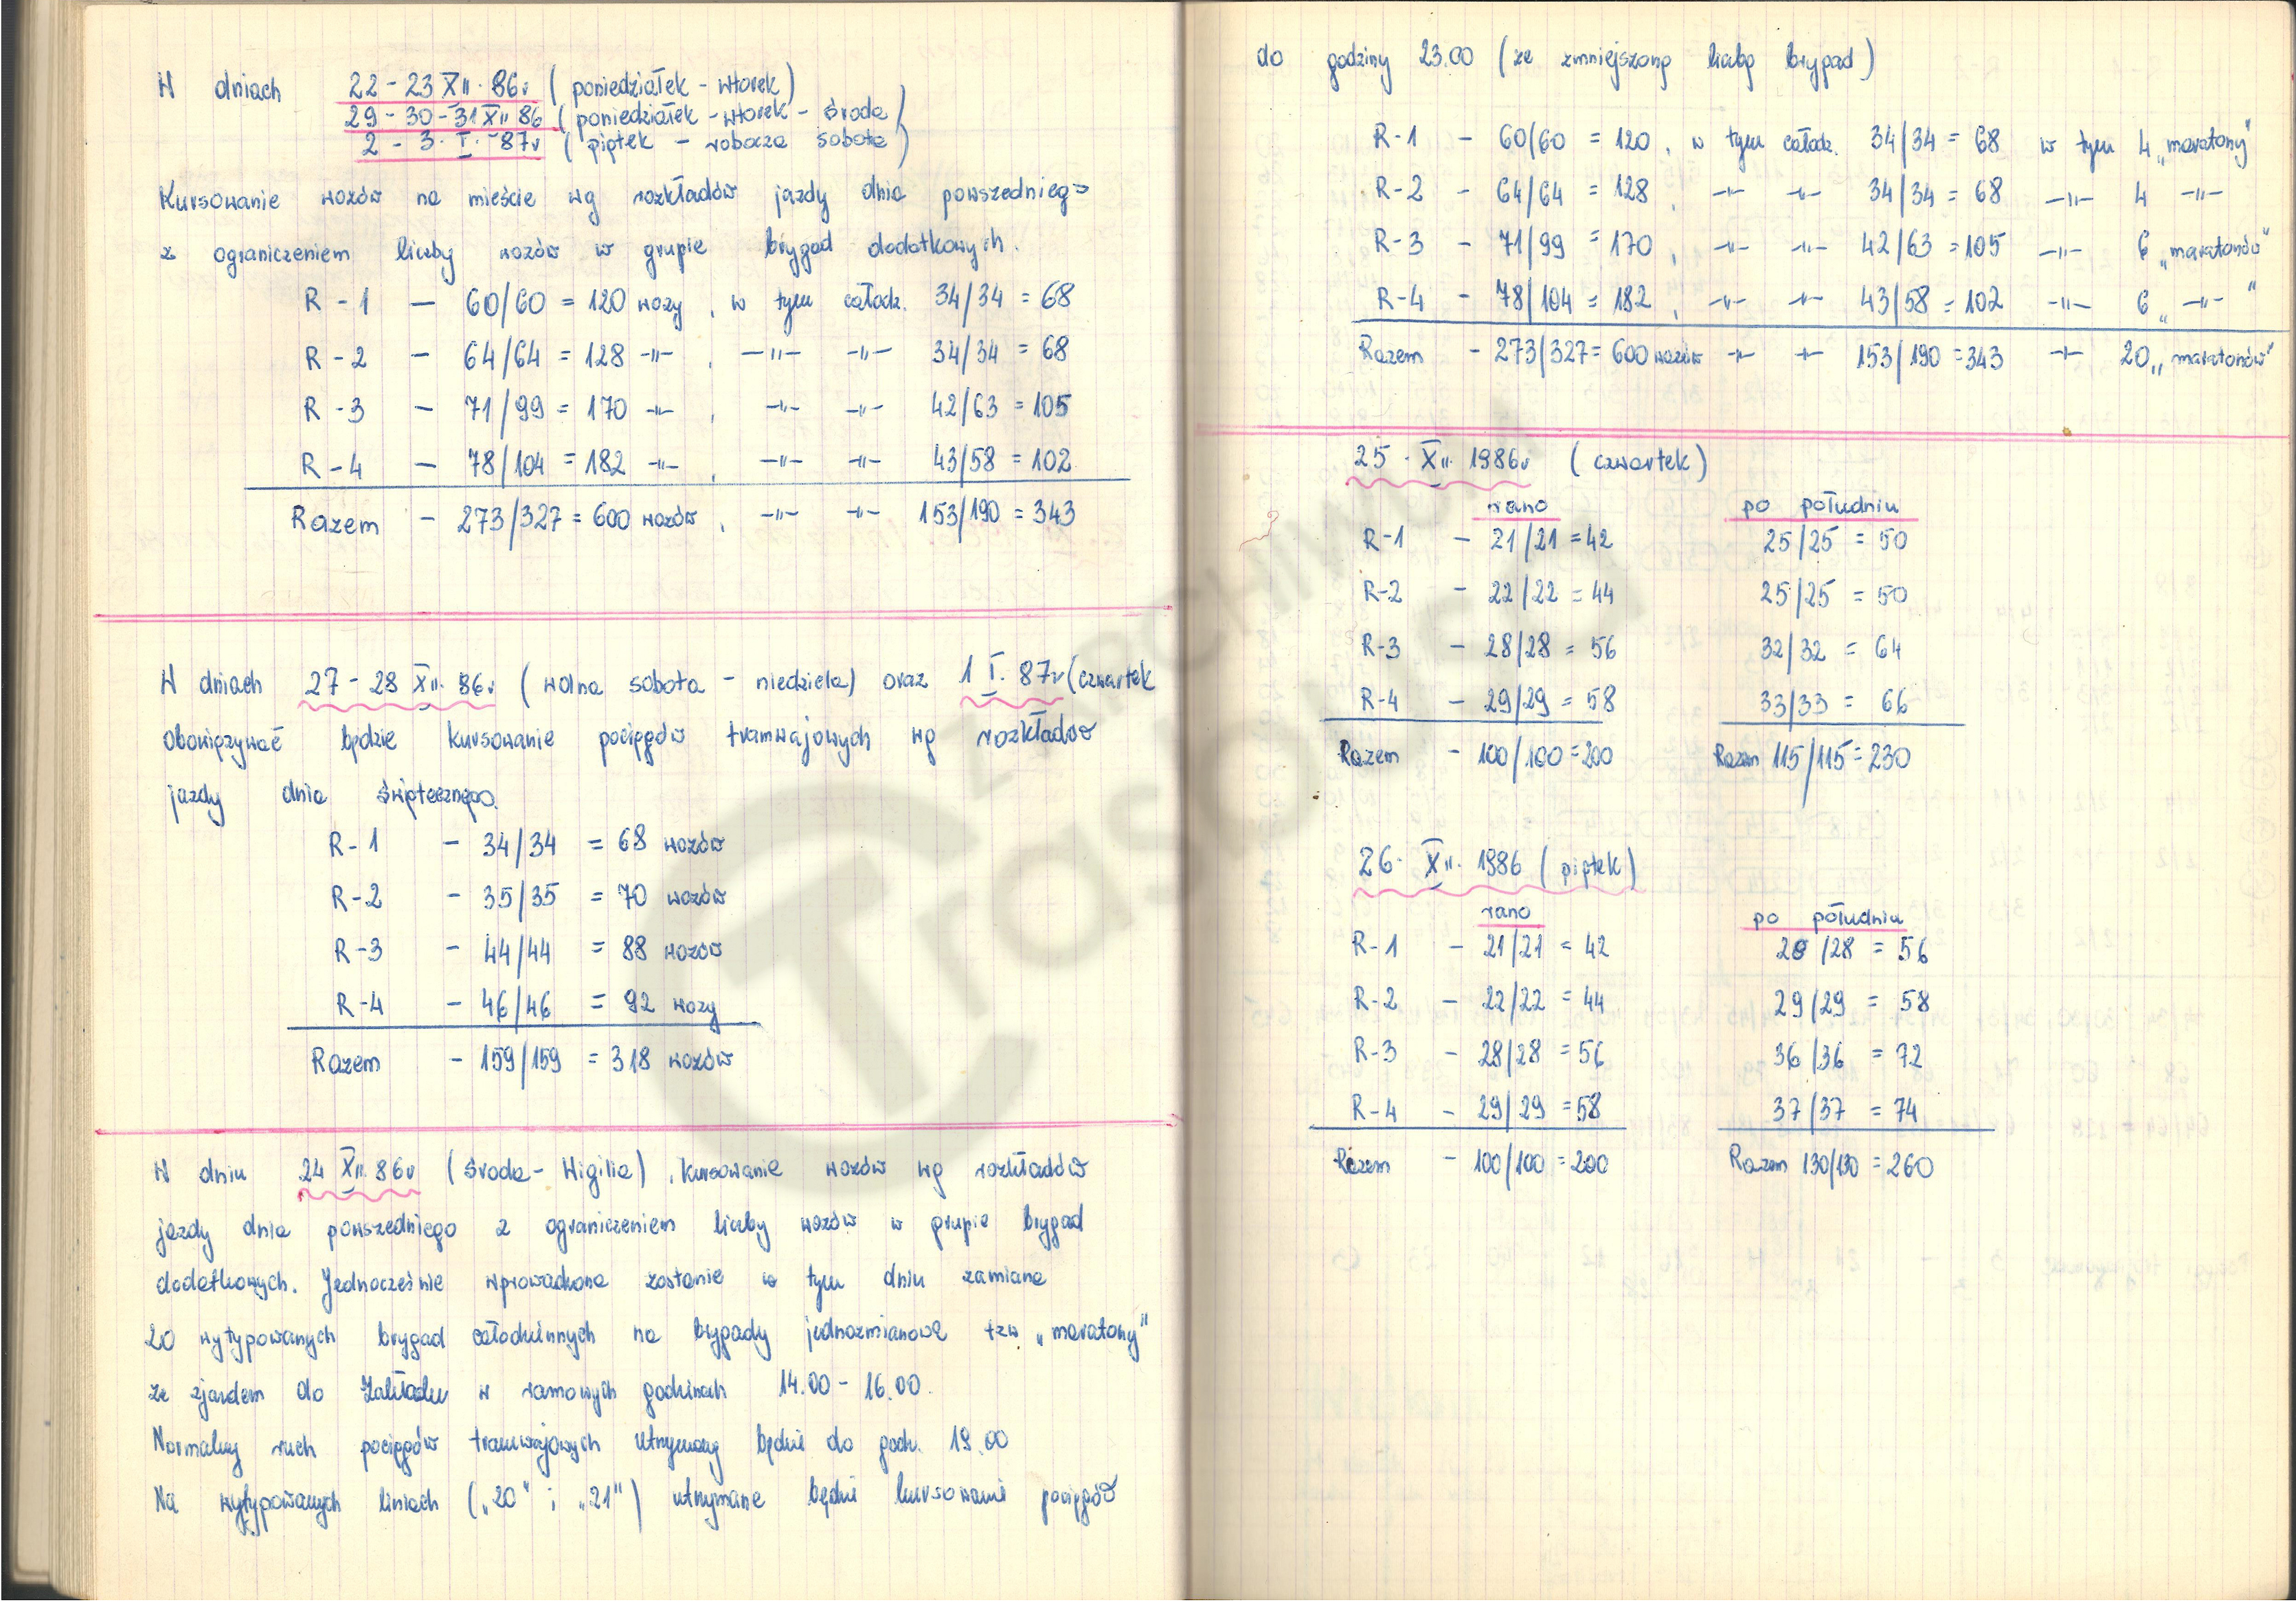 W dniach 22 - 23 XII. 86r (poniedziałek - wtorek)
29 - 30 - 31 XII 86 (poniedziałek - wtorek - środa)
2 - 3. I. - 87r (piątek - robocza sobota)
Kursowanie wozów na mieście wg rozkładów jazdy dnia powszedniego
z ograniczeniem liczby wozów w grupie brygad dodatkowych.
R - 1 — 60/60 = 120 wozy, w tym całodz. 34/34 = 68
R - 2 — 64/64 = 128 -"- , -"- -"- 34/34 = 68
R - 3 — 71/99 = 170 -"- , -"- -"- 42/63 = 105
R - 4 — 78/104 = 182 -"- , -"- -"- 43/58 = 102
Razem - 273/327 = 600 wozów, -"- -"- 153/190 = 343
W dniach 27 - 28 XII. 86r (wolna sobota - niedziela) oraz 1 I. 87r (czwartek
obowiązywać będzie kursowanie pociągów tramwajowych wg rozkładów
jazdy dnia świątecznego.
R - 1 - 34/34 = 68 wozów
R - 2 - 35/35 = 70 wozów
R - 3 - 44/44 = 88 wozów
R - 4 - 46/46 = 92 wozy
Razem - 159/159 = 318 wozów
W dniu 24 XII. 86r (środa - Wigilia), kursowanie wozów wg rozkładów
jazdy dnia powszedniego z ograniczeniem liczby wozów w grupie brygad
dodatkowych. Jednocześnie wprowadzona zostanie w tym dniu zamiana
20 wytypowanych brygad całodziennych na brygady jednozmianowe tzw „maratony"
ze zjazdem do Zakładu w ramowych godzinach 14.00 - 16.00.
Normalny ruch pociągów tramwajowych utrzymany będzie do godz. 19.00
Na wytypowanych liniach („20" i „21") utrzymane będzie kursowanie pociągów
do godziny 23.00 (ze zmniejszoną liczbą brygad)
R - 1 - 60/60 = 120, w tym całodz. 34/34 = 68 w tym 4 „maratony"
R - 2 - 64/64 = 128, -"- -"- 34/34 = 68 -"- 4 -"-
R - 3 - 71/99 = 170, -"- -"- 42/63 = 105 -"- 6 „maratonów"
R - 4 - 78/104 = 182, -"- -"- 43/58 = 102 -"- 6 „-"-"
Razem - 273/327 = 600 wozów -"- -"- 153/190 = 343 -"- 20 „maratonów"
25. XII. 1986r (czwartek)
rano po południu
R - 1 - 21/21 = 42 25/25 = 50
R - 2 - 22/22 = 44 25/25 = 50
R - 3 - 28/28 = 56 32/32 = 64
R - 4 - 29/29 = 58 33/33 = 66
Razem - 100/100 = 200 Razem 115/115 = 230
26. XII. 1986 (piątek)
rano po południu
R - 1 - 21/21 = 42 28/28 = 56
R - 2 - 22/22 = 44 29/29 = 58
R - 3 - 28/28 = 56 36/36 = 72
R - 4 - 29/29 = 58 37/37 = 74
Razem - 100/100 = 200 Razem 130/130 = 260